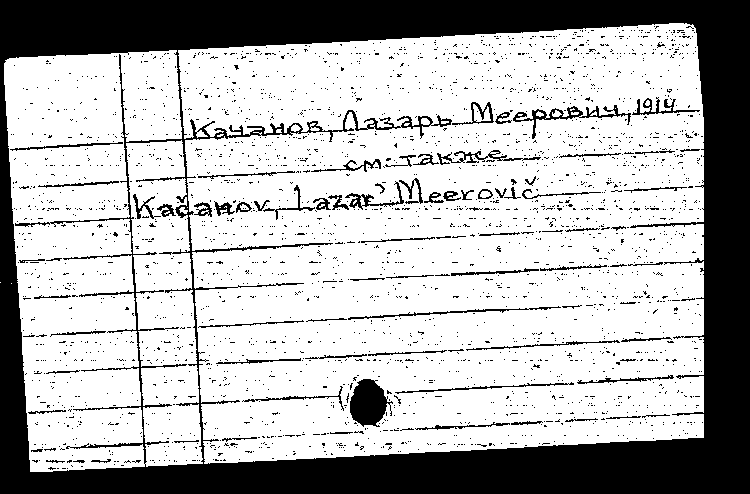 Качанов, Лазарь Меерович, 1914
см. также
Kačanov, Lazar' Meerovič